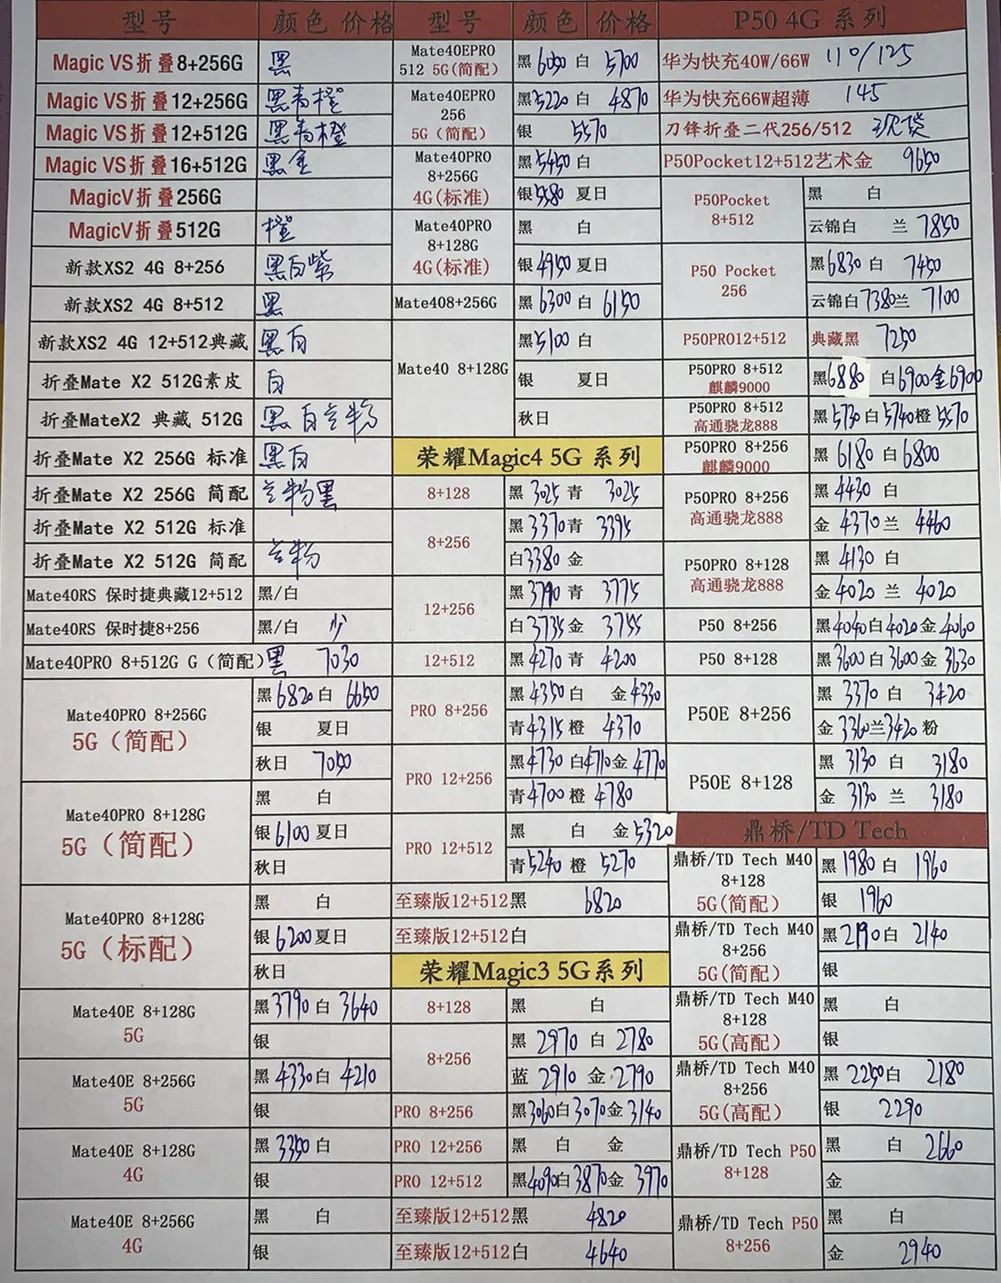 型号 颜色 价格
Magic VS折叠8+256G 黑
Magic VS折叠12+256G 黑青橙
Magic VS折叠12+512G 黑青橙
Magic VS折叠16+512G 黑金
MagicV折叠256G
MagicV折叠512G 橙
新款XS2 4G 8+256 黑白紫
新款XS2 4G 8+512 黑
新款XS2 4G 12+512典藏 黑白
折叠Mate X2 512G素皮 白
折叠MateX2 典藏 512G 黑白兰粉
折叠Mate X2 256G 标准 黑白
折叠Mate X2 256G 简配 兰粉黑
折叠Mate X2 512G 标准
折叠Mate X2 512G 简配 兰粉
Mate40RS 保时捷典藏12+512 黑/白
Mate40RS 保时捷8+256 黑/白 少
Mate40PRO 8+512G G（简配） 黑 7030
Mate40PRO 8+256G
5G（简配）
黑6820白 6650
银 夏日
秋日 7050
Mate40PRO 8+128G
5G（简配）
黑 白
银6100夏日
秋日
Mate40PRO 8+128G
5G（标配）
黑 白
银6200夏日
秋日
Mate40E 8+128G
5G
黑3790白 3640
银
Mate40E 8+256G
5G
黑4330白 4210
银
Mate40E 8+128G
4G
黑3350白
银
Mate40E 8+256G
4G
黑 白
银
型号 颜色 价格
Mate40EPRO
512 5G(简配)
黑6050白 5700
Mate40EPRO
256
5G（简配）
黑5220白 4870
银 5570
Mate40PRO
8+256G
4G(标准)
黑5450白
银5580 夏日
Mate40PRO
8+128G
4G(标准)
黑 白
银4950夏日
Mate408+256G 黑6300白6150
Mate40 8+128G
黑5100白
银 夏日
秋日
荣耀Magic4 5G 系列
8+128 黑3025青 3025
8+256
黑3370青 3395
白3380金
12+256
黑3790青 3775
白3735金 3755
12+512 黑4270青 4200
PRO 8+256
黑4350白 金4330
青4315橙 4370
PRO 12+256
黑4730白4710金4770
青4700橙 4780
PRO 12+512
黑 白 金5320
青5240橙 5270
至臻版12+512黑 6820
至臻版12+512白
荣耀Magic3 5G系列
8+128 黑 白
8+256
黑 2970 白 2780
蓝 2910 金2790
PRO 8+256 黑3060白3070金3140
PRO 12+256 黑 白 金
PRO 12+512 黑4090白3870金3970
至臻版12+512黑 4820
至臻版12+512白 4640
P50 4G 系列
华为快充40W/66W 110/125
华为快充66W超薄 145
刀锋折叠二代256/512 现货
P50Pocket12+512艺术金 9650
P50Pocket
8+512
黑 白
云锦白 兰 7850
P50 Pocket
256
黑6830白 7450
云锦白7380兰 7100
P50PRO12+512 典藏黑 7250
P50PRO 8+512
麒麟9000
黑6880 白6900金6900
P50PRO 8+512
高通骁龙888
黑5730白5740橙5570
P50PRO 8+256
麒麟9000
黑 6180白6800
P50PRO 8+256
高通骁龙888
黑4430 白
金 4370兰 4460
P50PRO 8+128
高通骁龙888
黑4130 白
金4020兰 4020
P50 8+256 黑4040白4020金4060
P50 8+128 黑3600白3600金3630
P50E 8+256
黑 3370 白 3420
金 3360兰3420粉
P50E 8+128
黑 3130 白 3180
金 3130 兰 3180
鼎桥/TD Tech
鼎桥/TD Tech M40
8+128
5G(简配)
黑 1980白 1960
银 1960
鼎桥/TD Tech M40
8+256
5G(简配)
黑2190白 2140
银
鼎桥/TD Tech M40
8+128
5G(高配)
黑 白
银
鼎桥/TD Tech M40
8+256
5G(高配)
黑 2250白 2180
银 2290
鼎桥/TD Tech P50
8+128
黑 白 2660
金
鼎桥/TD Tech P50
8+256
黑 白
金 2940